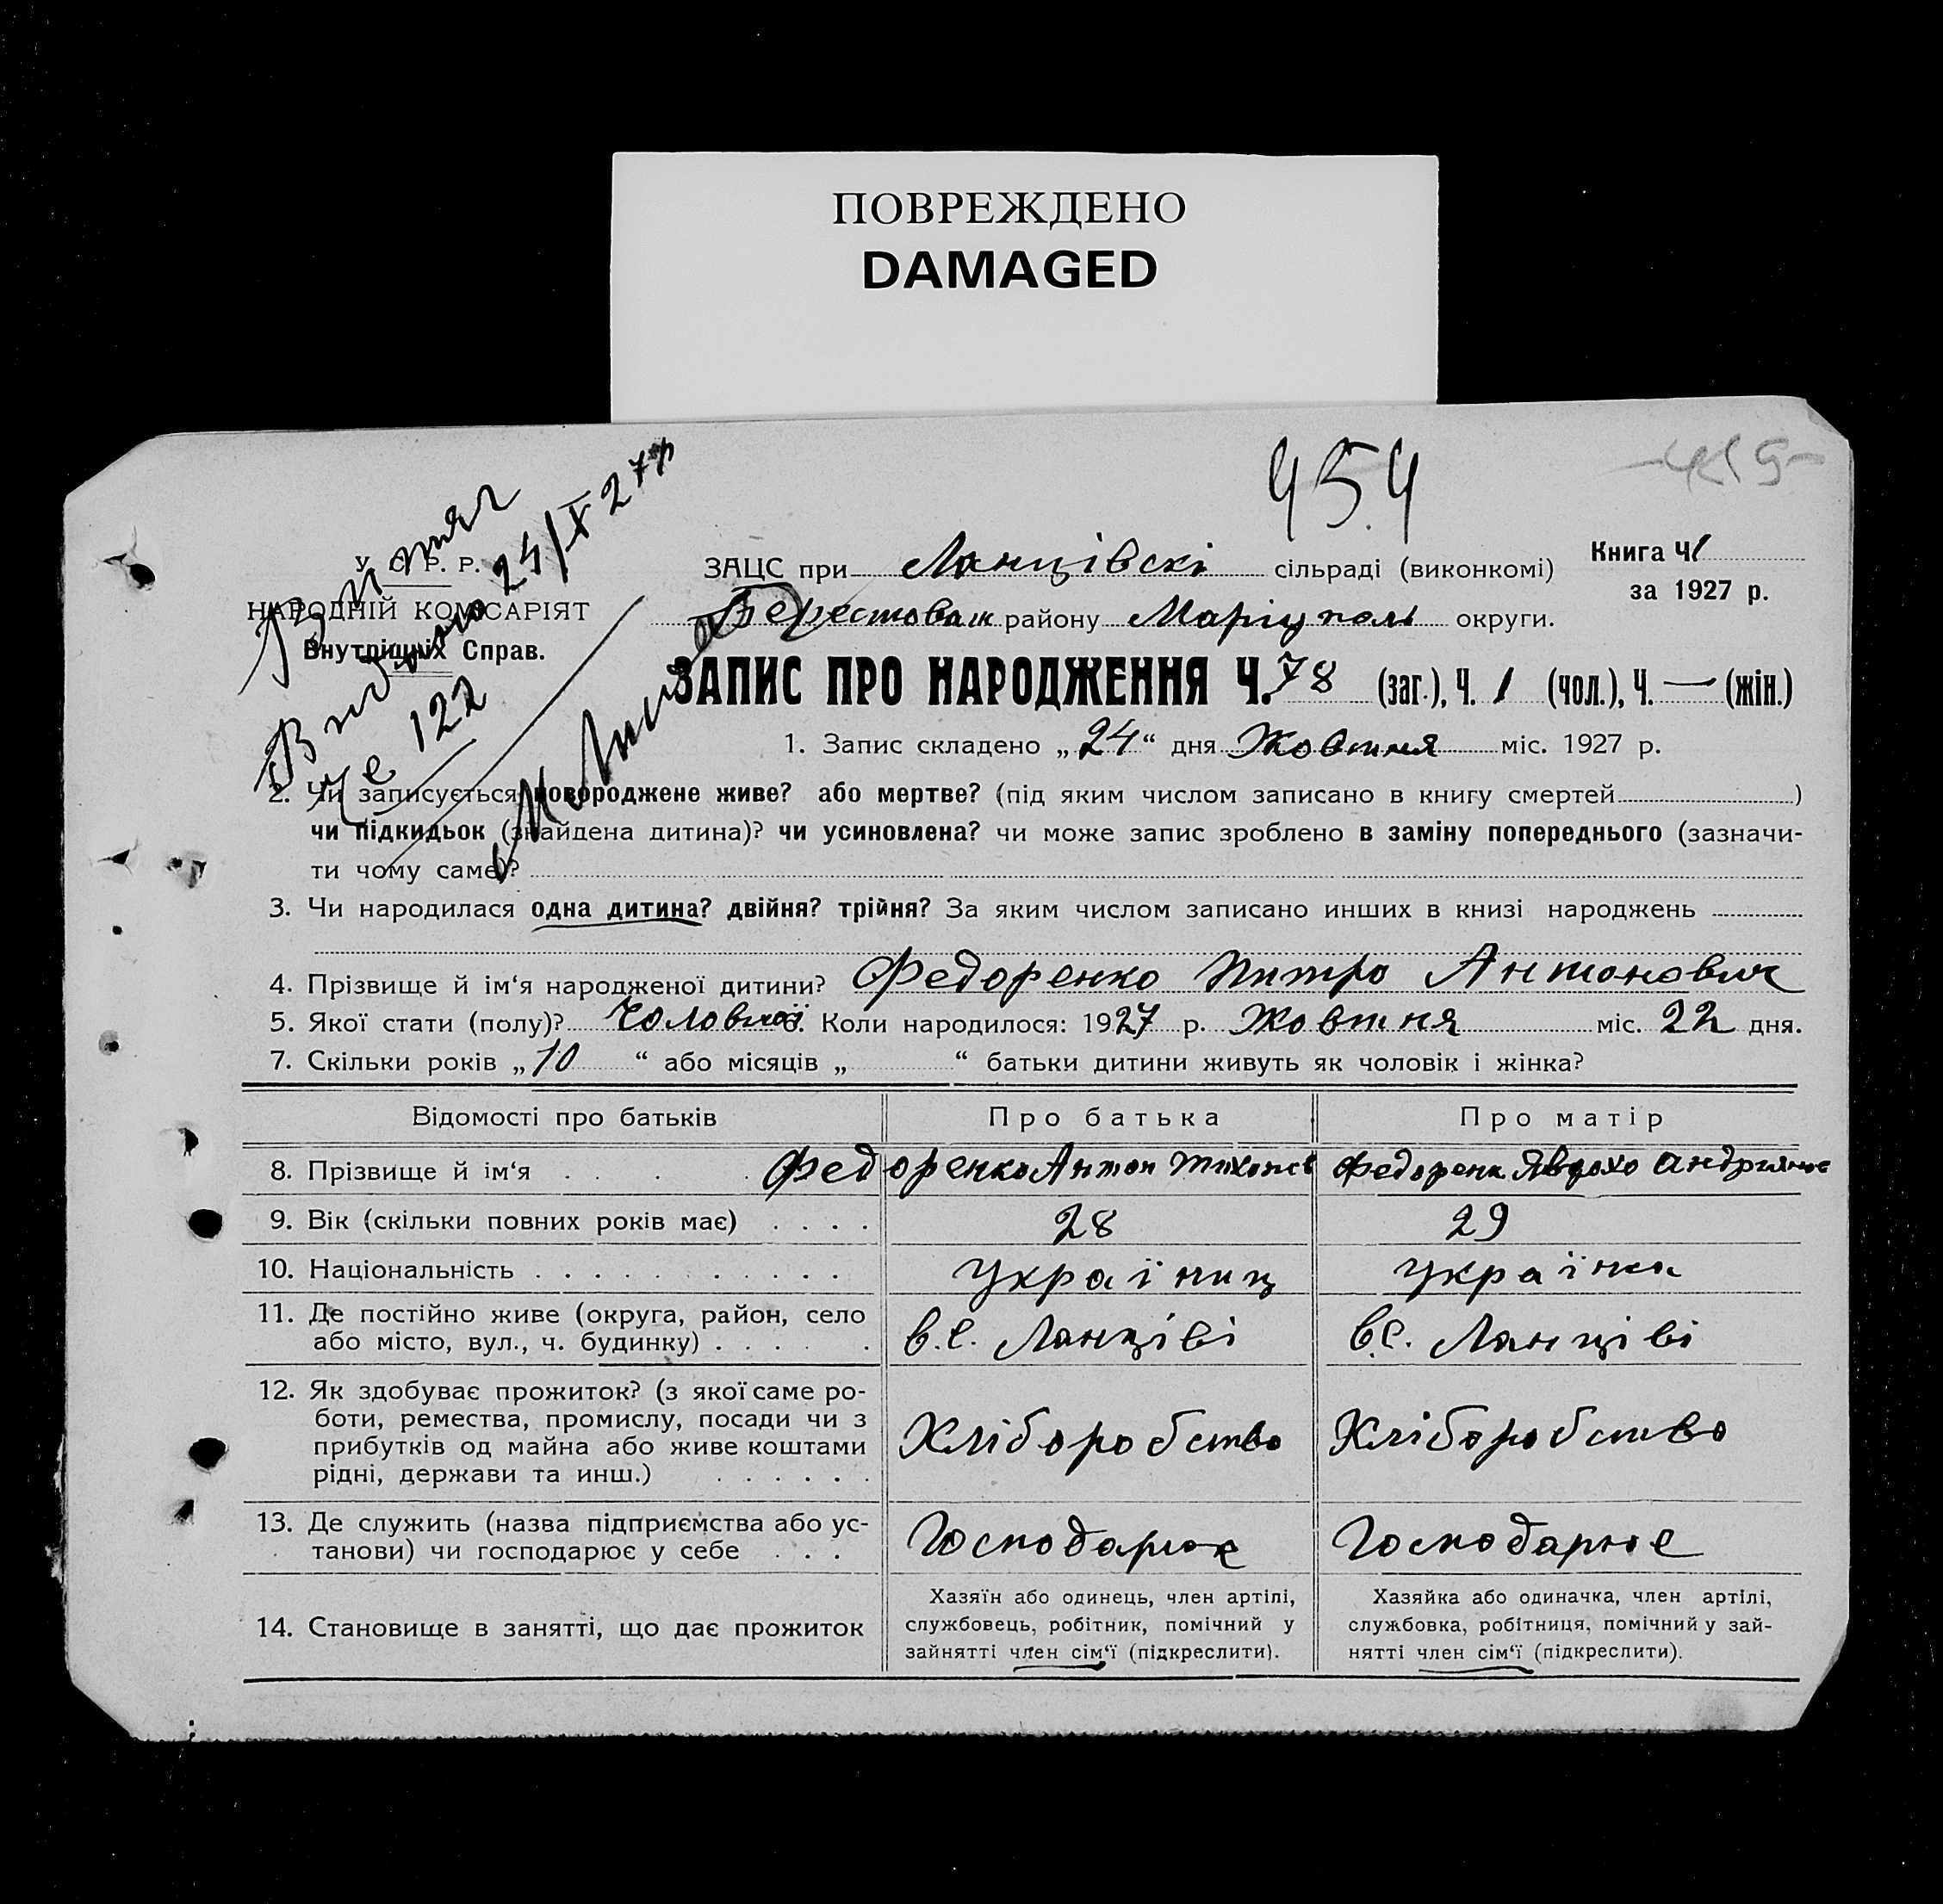 ПОВРЕЖДЕНО
DAMAGED
454
У. С. Р. Р.
НАРОДНІЙ КОМІСАРІЯТ
Внутрішніх Справ.
Витяг
24/X 27р
№ 122
ЗАЦС при Ланцівскі сільраді (виконкомі)
Книга Ч 1
за 1927 р.
району Маріуполь округи.
ЗАПИС ПРО НАРОДЖЕННЯ Ч. 78 (заг.), Ч. 1 (чол.), Ч. — (жін.)
1. Запис складено „24“ дня Жовтня міс. 1927 р.
2. Чи записується новороджене живе? або мертве? (під яким числом записано в книгу смертей )
чи підкидьок (знайдена дитина)? чи усиновлена? чи може запис зроблено в заміну попереднього (зазначи-
ти чому саме)?
3. Чи народилася одна дитина? двійня? трійня? За яким числом записано инших в книзі народжень
4. Прізвище й ім‘я народженої дитини? Федоренко Антонович
5. Якої стати (полу)? Коли народилося: 1927 р. Жовтня міс. 22 дня.
7. Скільки років „10“ або місяців „ “ батьки дитини живуть як чоловік і жінка?
Відомості про батьків Про батька Про матір
8. Прізвище й ім‘я Федоренко Антон
9. Вік (скільки повних років має) 28 29
10. Національність україниц українка
11. Де постійно живе (округа, район, село
або місто, вул., ч. будинку) в.с. Ланціві в.с. Ланціві
12. Як здобуває прожиток? (з якої саме ро-
боти, ремества, промислу, посади чи з
прибутків од майна або живе коштами
рідні, держави та инш.) Хліборобство Хліборобство
13. Де служить (назва підприємства або ус-
танови) чи господарює у себе Господарює Господарює
14. Становище в занятті, що дає прожиток
Хазяїн або одинець, член артілі,
службовець, робітник, помічний у
зайнятті член сім‘ї (підкреслити).
Хазяйка або одиначка, член артілі,
службовка, робітниця, помічний у зай-
нятті член сім‘ї (підкреслити).